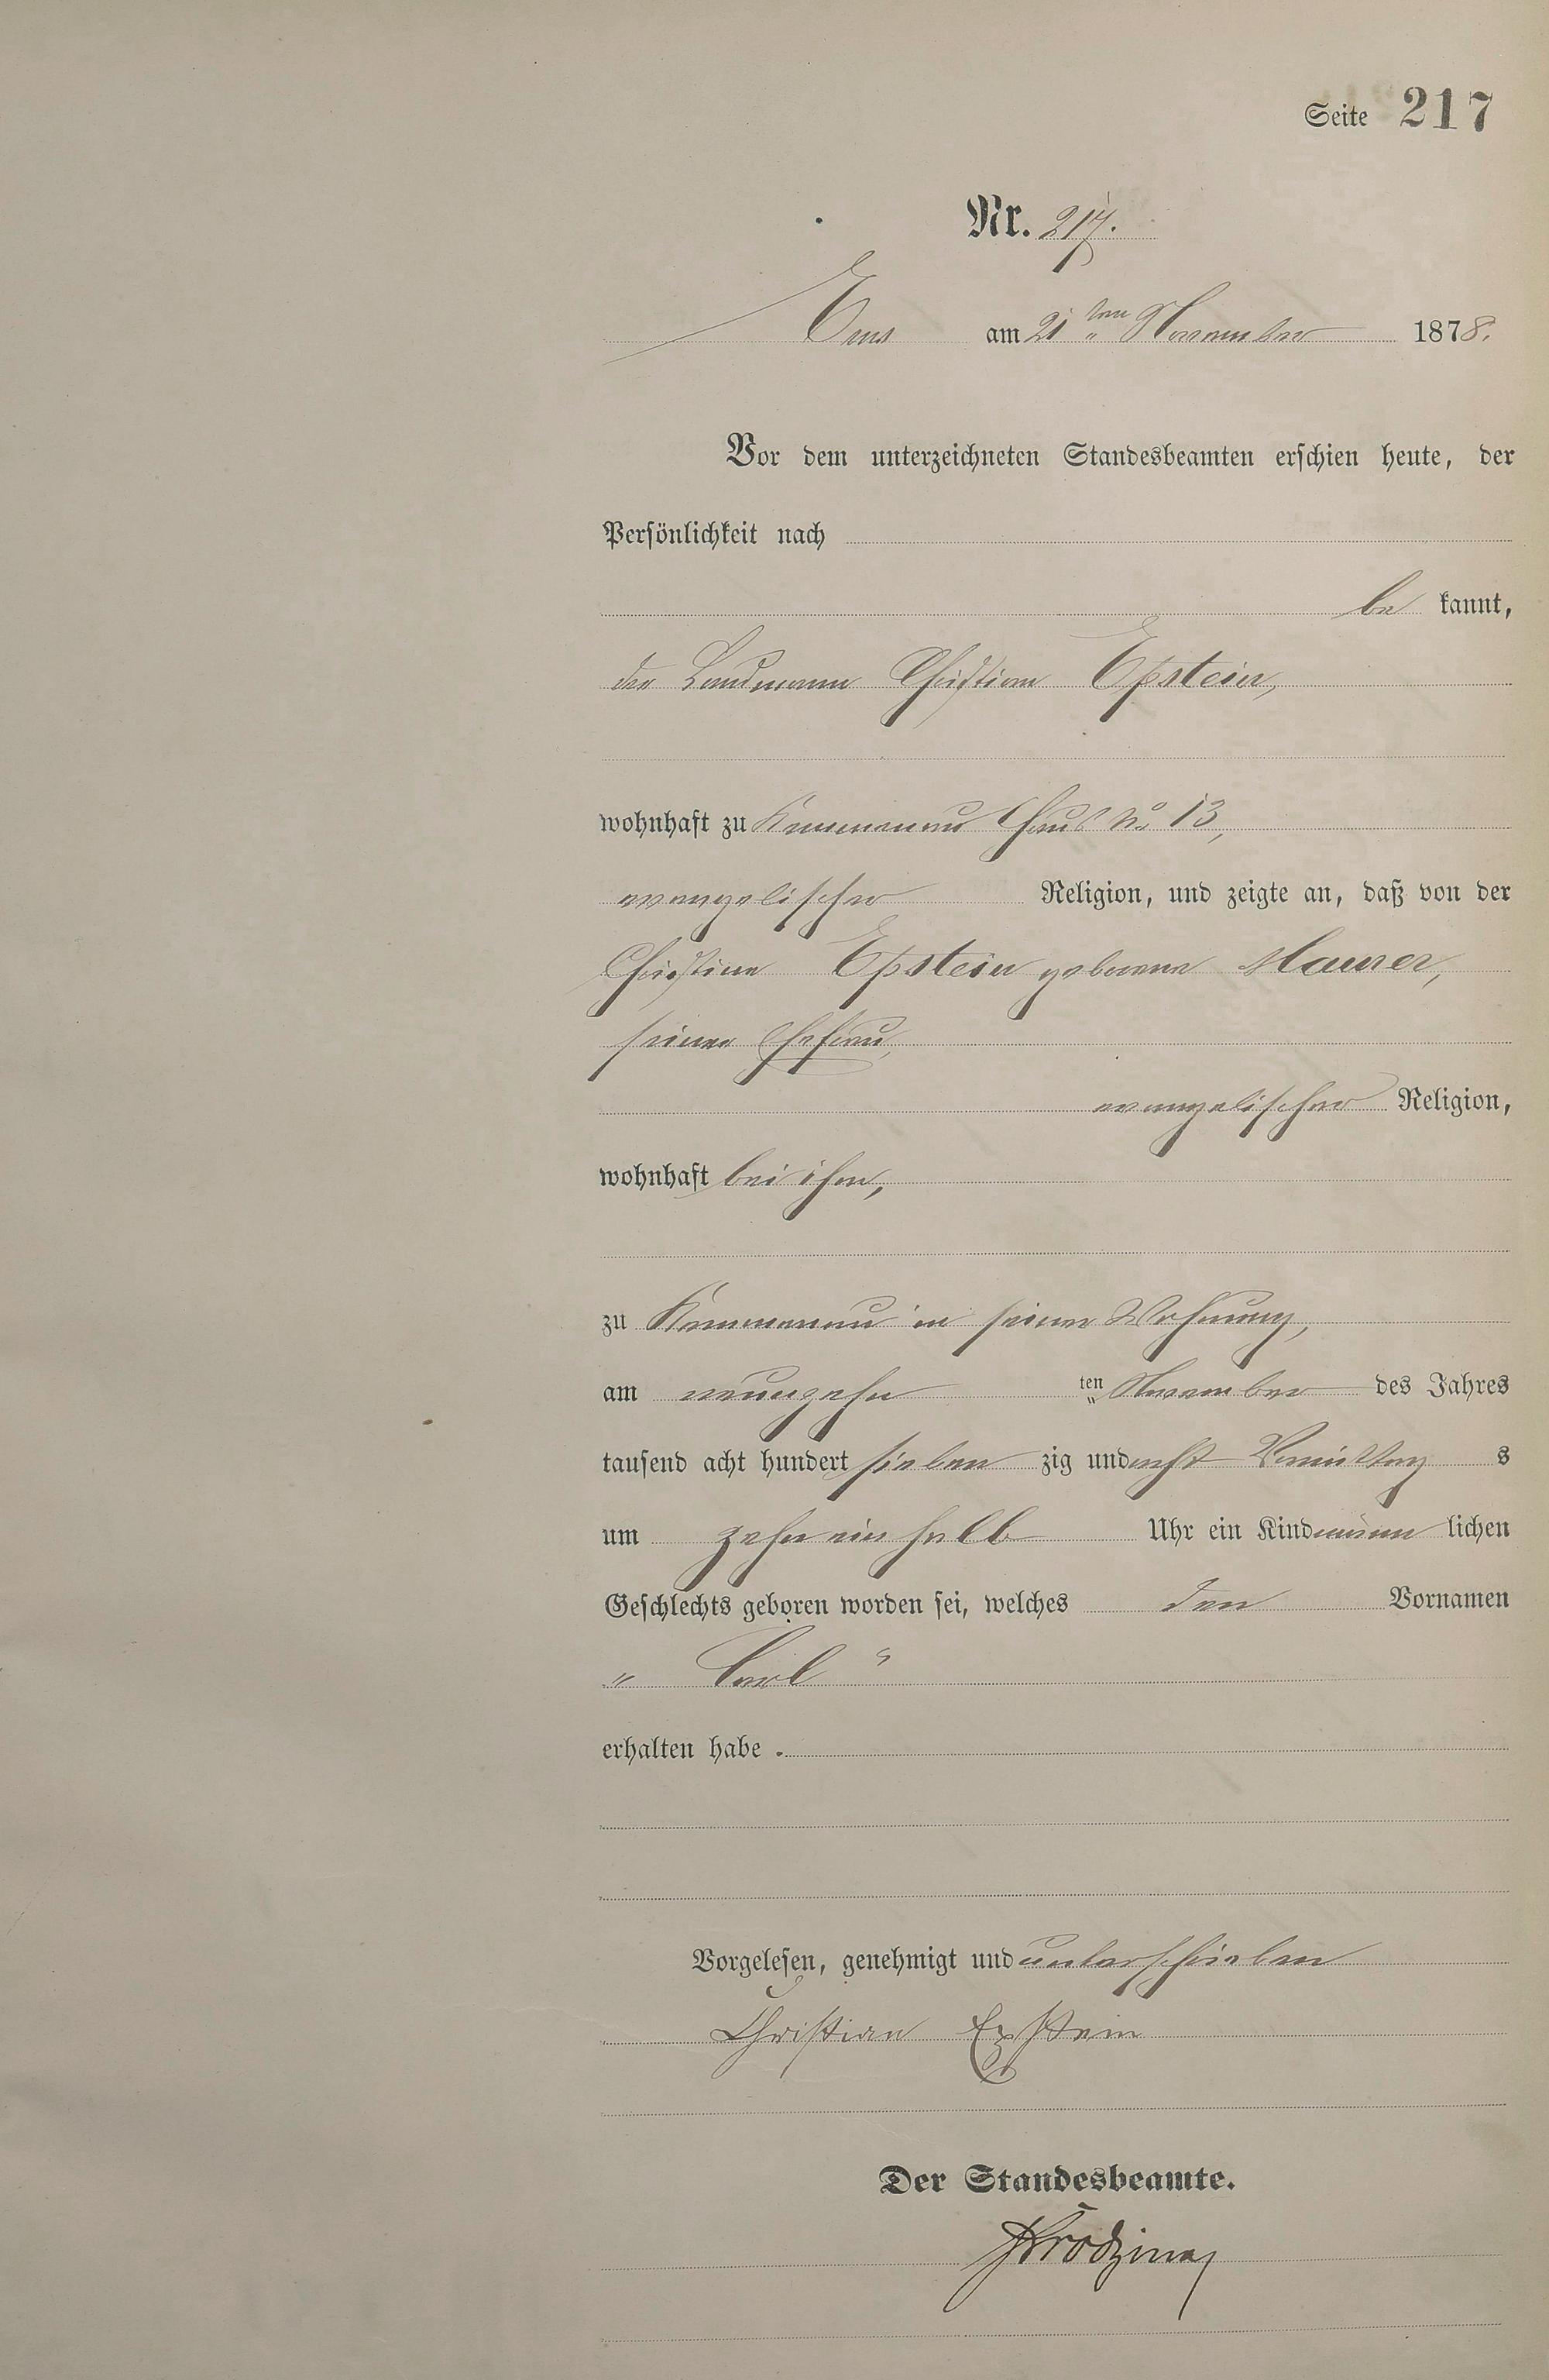 Seite 217
Nr. 217.
Ems am 21ten November 1878.
Vor dem unterzeichneten Standesbeamten erschien heute, der
Persönlichkeit nach
be kannt,
der Landmann Christian Epstein,
wohnhaft zu Kemmenau Haus No 13,
evangelischer Religion, und zeigte an, daß von der
Christine Epstein geborene Maurer,
seiner Ehefrau,
evangelischer Religion,
wohnhaft bei ihm,
zu Kemmenau in seiner Wohnung,
am neunzehn ten November des Jahres
tausend acht hundert sieben zig und acht Vormittag s
um zehn ein halb Uhr ein Kind männ lichen
Geschlechts geboren worden sei, welches den Vornamen
„ Carl “
erhalten habe .
Vorgelesen, genehmigt und unterschrieben
Christian Epstein
Der Standesbeamte.